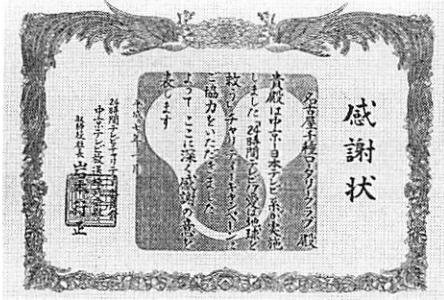 感謝状
名古屋千種ロータリークラブ殿
貴殿は中京・日本テレビ系が実施
しました24時間テレビ「愛は地球を
救う」チャリティーキャンペーンに
ご協力をいただきました
よって ここに深く感謝の意を
表します
平成七年 月
24時間テレビチャリティー
中京テレビ放送株式会社
取締役社長